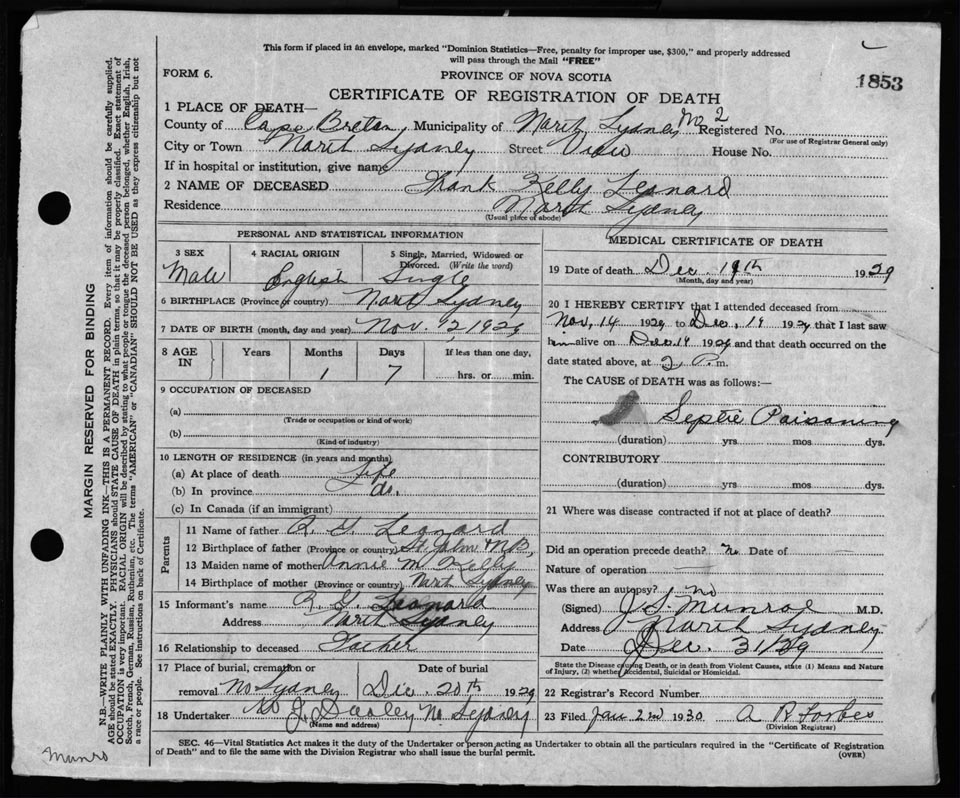 This form if placed in an envelope, marked "Dominion Statistics—Free, penalty for improper use, $300," and properly addressed
will pass through the Mail "FREE"
FORM 6.
PROVINCE OF NOVA SCOTIA
1853
CERTIFICATE OF REGISTRATION OF DEATH
1 PLACE OF DEATH—
County of Cape Breton Municipality of North Sydney No 2 Registered No.
(For use of Registrar General only)
City or Town North Sydney Street House No.
If in hospital or institution, give name
2 NAME OF DECEASED Frank Kelly Leonard
Residence North Sydney
(Usual place of abode)
PERSONAL AND STATISTICAL INFORMATION
3 SEX
Male
4 RACIAL ORIGIN
English
5 Single, Married, Widowed or
Divorced. (Write the word)
Single
6 BIRTHPLACE (Province or country) North Sydney
7 DATE OF BIRTH (month, day and year) Nov. 12, 1929
8 AGE IN
Years Months Days If less than one day,
1 7 hrs. or min.
9 OCCUPATION OF DECEASED
(a)
(Trade or occupation or kind of work)
(b)
(Kind of industry)
10 LENGTH OF RESIDENCE (in years and months)
(a) At place of death Life
(b) In province do.
(c) In Canada (if an immigrant)
Parents
11 Name of father R. G. Leonard
12 Birthplace of father (Province or country) St. John N.B.
13 Maiden name of mother Annie M. Kelly
14 Birthplace of mother (Province or country) North Sydney
15 Informant's name R. G. Leonard
Address North Sydney
16 Relationship to deceased Father
17 Place of burial, cremation or
removal No Sydney
Date of burial
Dec. 20th 1929
18 Undertaker J. Dooley No Sydney
(Name and address)
MEDICAL CERTIFICATE OF DEATH
19 Date of death Dec. 19th 1929
(Month, day and year)
20 I HEREBY CERTIFY that I attended deceased from
Nov, 14 1929 to Dec, 19 1929 that I last saw
him alive on Dec 19 1929 and that death occurred on the
date stated above, at 2 P. m.
The CAUSE of DEATH was as follows:—
Septic Poisoning
(duration) yrs. mos. dys.
CONTRIBUTORY
(duration) yrs. mos. dys.
21 Where was disease contracted if not at place of death?
Did an operation precede death? no Date of —
Nature of operation —
Was there an autopsy? no
(Signed) J. S. Munroe M.D.
Address North Sydney
Date Dec. 31/29
State the Disease causing Death, or in death from Violent Causes, state (1) Means and Nature
of Injury, (2) whether Accidental, Suicidal or Homicidal.
22 Registrar's Record Number
23 Filed Jan 2nd 1930 A R Forbes
(Division Registrar)
SEC. 46—Vital Statistics Act makes it the duty of the Undertaker or person acting as Undertaker to obtain all the particulars required in the "Certificate of Registration
of Death" and to file the same with the Division Registrar who shall issue the burial permit.
(OVER)
MARGIN RESERVED FOR BINDING
N.B.—WRITE PLAINLY WITH UNFADING INK—THIS IS A PERMANENT RECORD. Every item of information should be carefully supplied.
AGE should be stated EXACTLY. PHYSICIANS should STATE CAUSE OF DEATH in plain terms, so that it may be properly classified. Exact statement of
OCCUPATION is very important. RACIAL ORIGIN will be described by stating to what people or tongue the deceased person belonged, whether English, Irish,
Scotch, French, German, Russian, Ruthenian, etc. The terms "AMERICAN" or "CANADIAN" SHOULD NOT BE USED as they express citizenship but not
a race or people. See instructions on back of Certificate.
Munro